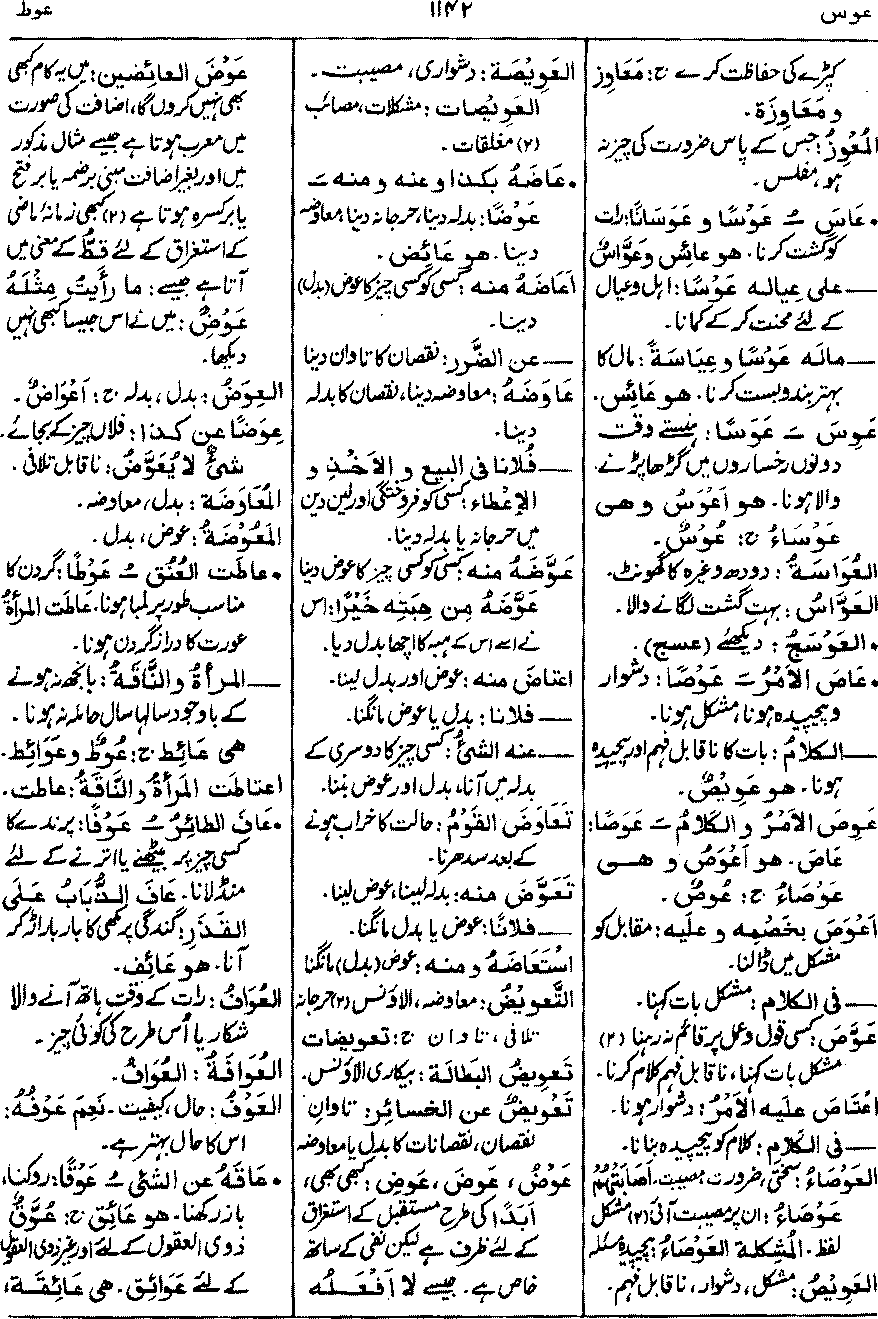 عوس
۱۱۴۲
عوط
کپڑے کی حفاظت کرے ج: مَعَاوِز
و مَعَاوِزَة.
المُعْوِزُ: جس کے پاس ضرورت کی چیز نہ
ہو، مفلس.
• عَاسَ ُ عَوْسًا و عَوَسَانًا: رات
کو گشت کرنا. هو عائِس وعَوَّاسٌ
— علی عیاله عَوْسًا: اہل و عیال
کے لئے محنت کرکے کمانا.
— ماله عَوْسًا وعِیَاسَةً: مال کا
بہتر بندوبست کرنا. هو عائِس.
عَوِسَ َ عَوَسًا: ہنستے وقت
دونوں رخساروں میں گڑھا پڑنے
والا ہونا. هو أَعْوَسُ و هی
عَوْسَاءُ ج: عُوسٌ.
العُوَاسَةُ: دودھ وغیرہ کا گھونٹ.
العَوَّاسُ: بہت گشت لگانے والا.
• العَوْسَجُ: دیکھئے (عسج).
• عَاصَ الأمْرُ َ عَوْصًا: دشوار
و پیچیدہ ہونا، مشکل ہونا.
— الکلامُ: بات کا ناقابل فہم اور پیچیدہ
ہونا. هو عَوِیْصٌ.
عَوِصَ الأمْرُ و الکلامُ َ عَوَصًا:
عَاصَ. هو أعْوَصُ و هی
عَوْصَاءُ ج: عُوصٌ.
أعْوَصَ بخَصْمِه و علیه: مقابل کو
مشکل میں ڈالنا.
— فی الکلام: مشکل بات کہنا.
عَوَّصَ: کسی قول و عمل پر قائم نہ رہنا (۲)
مشکل بات کہنا، ناقابل فہم کلام کرنا.
اعْتَاصَ علیه الأمْرُ: دشوار ہونا.
— فی الکلامِ: کلام کو پیچیدہ بنانا.
العَوْصَاءُ: سختی، ضرورت، مصیبت. أصَابَتْهُمْ
عَوْصَاءُ: ان پر مصیبت آئی (۲) مشکل
لفظ. المُشکِلة العَوْصَاءُ: پیچیدہ مسئلہ
العَوِیْصُ: مشکل، دشوار، ناقابل فہم.
العَوِیْصَة: دشواری، مصیبت.
العَوِیْصَات: مشکلات، مصائب
(۲) مغلقات.
• عَاضَهُ بکذا و عنه و منه ُ
عَوْضًا: بدلہ دینا، حرجانہ دینا، معاوضہ
دینا. هو عَائِض.
أعَاضَهُ منه: کسی کو کسی چیز کا عوض (بدل)
دینا.
— عن الضَّرر: نقصان کا تاوان دینا
عَاوَضَهُ: معاوضہ دینا، نقصان کا بدلہ
دینا.
— فُلانا فی البیع و الأخذِ و
الإعْطاء: کسی کو فروختگی اور لین دین
میں حرجانہ یا بدلہ دینا.
عَوَّضَهُ منه: کسی کو کسی چیز کا عوض دینا
عَوَّضَهُ مِن هِبَتِه خَیْرًا: اس
نے اسے اس کے ہبہ کا اچھا بدل دیا.
اعتاض منه: عوض اور بدل لینا.
— فلانا: بدل یا عوض مانگنا.
— عنه الشئُ: کسی چیز کا دوسری کے
بدلہ میں آنا، بدل اور عوض بننا.
تَعَاوَضَ القَوْمُ: حالت کا خراب ہونے
کے بعد سدھرنا.
تَعَوَّضَ منه: بدلہ لینا، عوض لینا.
— فلانًا: عوض یا بدل مانگنا.
اسْتَعَاضَهُ و منه: عوض (بدل) مانگنا
التَّعْوِیضُ: معاوضہ، الاؤنس (۲) حرجانہ
تلافی، تاوان ج: تعویضات
تَعْوِیضُ البَطَالَة: بیکاری الاؤنس.
تَعْوِیضٌ عن الخسائر: تاوانِ
نقصان، نقصانات کا بدل یا معاوضہ
عَوْضُ، عَوْضَ، عَوْضِ: کبھی بھی،
أبَدًا کی طرح مستقبل کے استغراق
کے لئے ظرف ہے لیکن نفی کے ساتھ
خاص ہے. جیسے لا أفْعَلُهُ
عَوْضَ العائِضین: میں یہ کام کبھی
بھی نہیں کروں گا، اضافت کی صورت
میں معرب ہوتا ہے جیسے مثال مذکور
میں اور بغیر اضافت مبنی بر ضمہ یا بر فتح
یا بر کسرہ ہوتا ہے (۲) کبھی زمانۂ ماضی
کے استغراق کے لئے قطُّ کے معنی میں
آتا ہے جیسے: ما رأیتُ مِثْلَهُ
عَوْضُ: میں نے اس جیسا کبھی نہیں
دیکھا.
العِوَضُ: بدل، بدلہ ج: أعْوَاضٌ.
عِوَضًا عن کذا: فلاں چیز کے بجائے.
شئٌ لا یُعَوَّضُ: ناقابل تلافی.
المُعَاوَضَة: بدل، معاوضہ.
المَعُوضَةُ: عوض، بدل.
• عاطَت العُنُق ُ عَوْطًا: گردن کا
مناسب طور پر لمبا ہونا. عاطَت المرأةُ
عورت کا دراز گردن ہونا.
— المرأةُ والنَّاقَةُ: بانجھ نہ ہونے
کے باوجود سالہا سال حاملہ نہ ہونا.
هی عَائِط ج: عُوطٌ وعَوَائِط.
اعتاطَت المَرأةُ والنَّاقَةُ: عاطت.
• عَافَ الطائرُ ُ عَوْفًا: پرندے کا
کسی چیز پر بیٹھنے یا اترنے کے لئے
منڈلانا. عَافَ الذُّبَابُ عَلَی
القَذَرِ: گندگی پر مکھی کا بار بار اڑ کر
آنا. هو عَائِف.
العُوَافُ: رات کے وقت ہاتھ آنے والا
شکار یا اُس طرح کی کوئی چیز.
العُوَافَةُ: العُوَافُ.
العَوْفُ: حال، کیفیت. نَعِمَ عَوْفُهُ:
اس کا حال بہتر ہے.
• عَاقَهُ عن الشئی ُ عَوْقًا: روکنا،
باز رکھنا. هو عائِق ج: عُوَّقٌ
ذوی العقول کے لئے اور غیر ذوی العقول
کے لئے عَوَائِق. هی عائِقة،